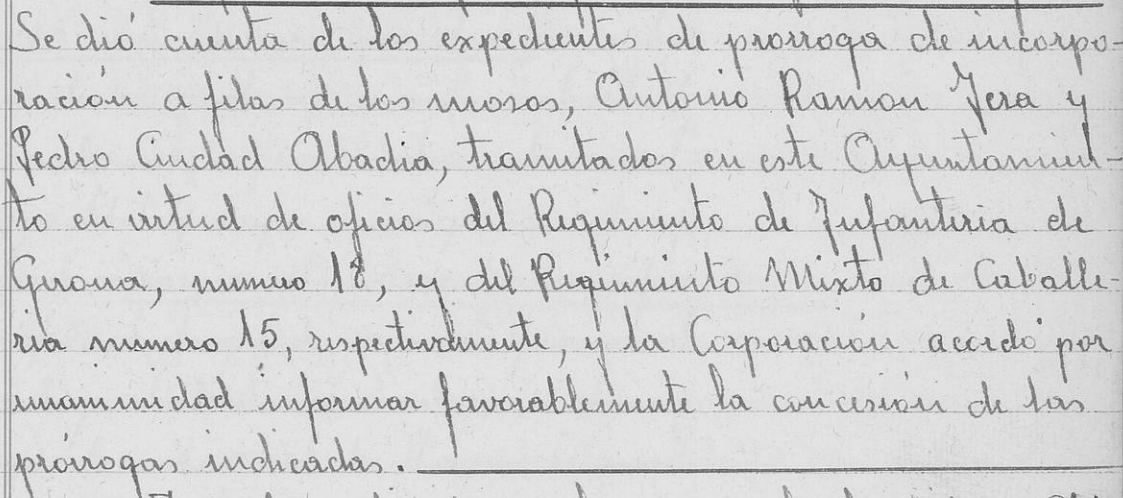 Se dió cuenta de los expedientes de prorroga de incorpo-
ración a filas de los mozos, Antonio Ramon Jera y
Pedro Ciudad Abadia, tramitados en este Ayuntamien-
to en virtud de oficios del Regimiento de Infanteria de
Gerona, numero 18, y del Regimiento Mixto de Caballe-
ria numero 15, respectivamente, y la Corporación acordó por
unanimidad informar favorablemente la concesión de las
prórrogas indicadas.